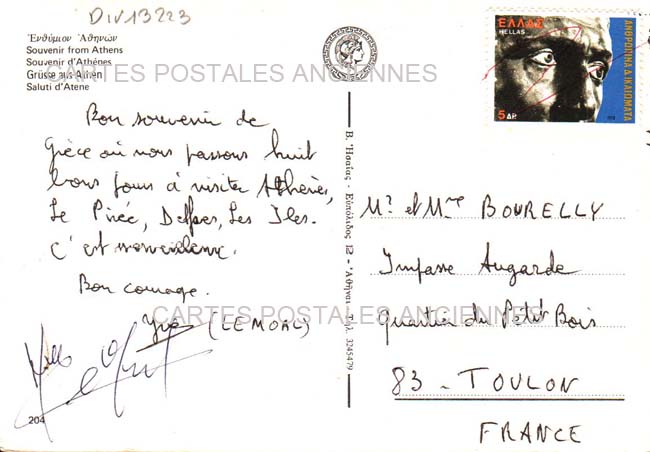 DIV13223
Ἐνθύμιον Ἀθηνῶν
Souvenir from Athens
Souvenir d'Athénes
Grüsse aus Athen
Saluti d'Atene
CARTES POSTALES ANCIENNES
Bon souvenir de
Grèce où nous passons huit
bons jours à visiter Athènes,
Le Pirée, Delphes, Les Iles.
C'est merveilleux.
Bon courage.
(LEMOAL)
CARTES POSTALES ANCIENNES
204
Β. Ἡσαΐας - Εὐπόλιδος 12 - Ἀθῆναι Τηλ. 3245479
ΕΛΛΑΣ
HELLAS
ΑΝΘΡΩΠΙΝΑ ΔΙΚΑΙΩΜΑΤΑ
5 ΔΡ
Mr et Mme BOURELLY
Impasse Augarde
Quartier du Petit Bois
83 - TOULON
FRANCE